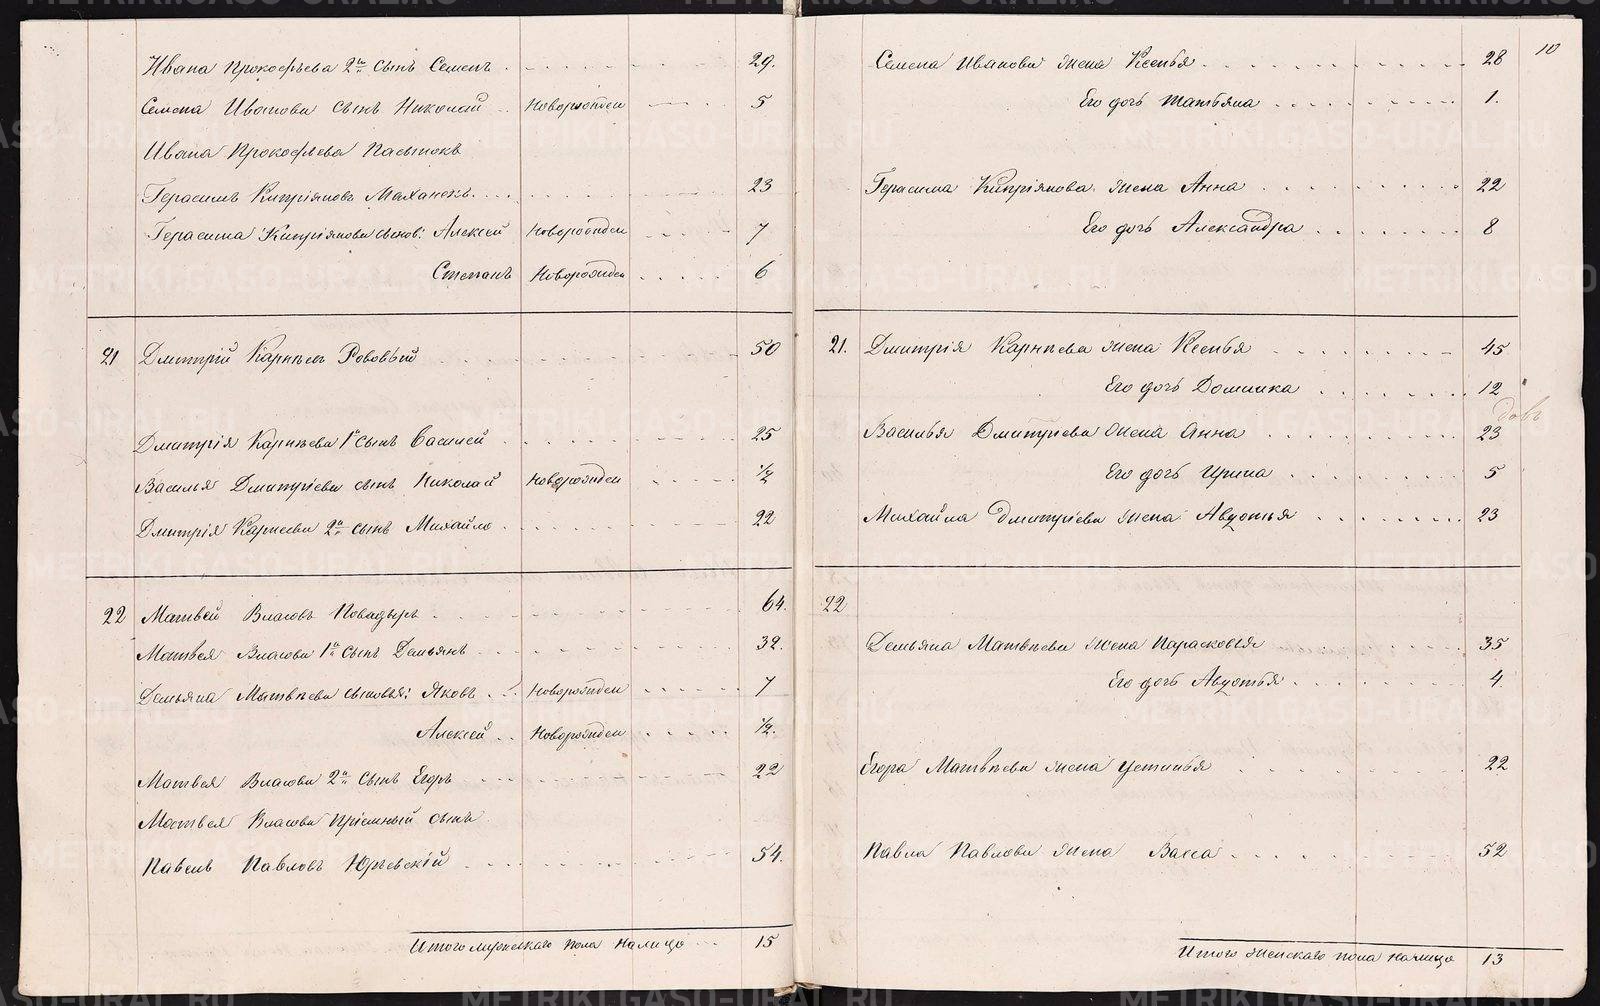 Ивана Прокофьева 2й сынъ Семенъ 29.
Семена Иванова сынъ Николай Новорожден 5
Ивана Прокофьева Пасынокъ
Герасимъ Кипріяновъ Маханекъ 23
Герасима Кипріянова сынов: Алексей Новорожден 7
Степанъ Новорожден 6
21 Дмитрій Карнѣевъ Рововый 50
Дмитрія Карнѣева 1й сынъ Василей 25
Василья Дмитріева сынъ Николай Новорожден 1/2
Дмитрія Карнеева 2й сынъ Михайло 22
22 Матвей Власовъ Повадыръ 64.
Матвея Власова 1й сынъ Демьянъ 32.
Демьяна Матвѣева сыновья: Яковъ Новорожден 7
Алексей Новорожден 1/2.
Матвея Власова 2й сынъ Егоръ 22
Матвея Власова Пріемный сынъ
Павелъ Павловъ Юрьевскій 54.
Итого мужескаго пола налицо 15
10
Семена Иванова жена Ксенья 28
Его дочь Татьяна 1.
Герасима Кипріянова жена Анна 22
Его дочь Александра 8
21. Дмитрія Карнѣева жена Ксенья 45
Его дочь Домника 12
Василья Дмитріева жена Анна 23
Его дочь Ирина 5
Михайла Дмитріева жена Авдотья 23
22
Демьяна Матвѣева жена Парасковья 35
Его дочь Авдотья 4.
Егора Матвѣева жена Устинья 22
Павла Павлова жена Васса 52
Итого женскаго пола налицо 13
METRIKI.GASO-URAL.RU